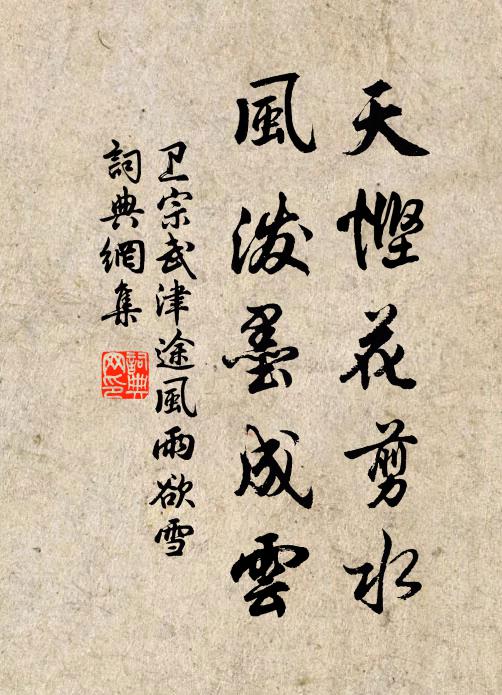 天慳花剪水
風潑墨成雲
卫宗武津途風雨欲雪
詞典網集
詞典网印